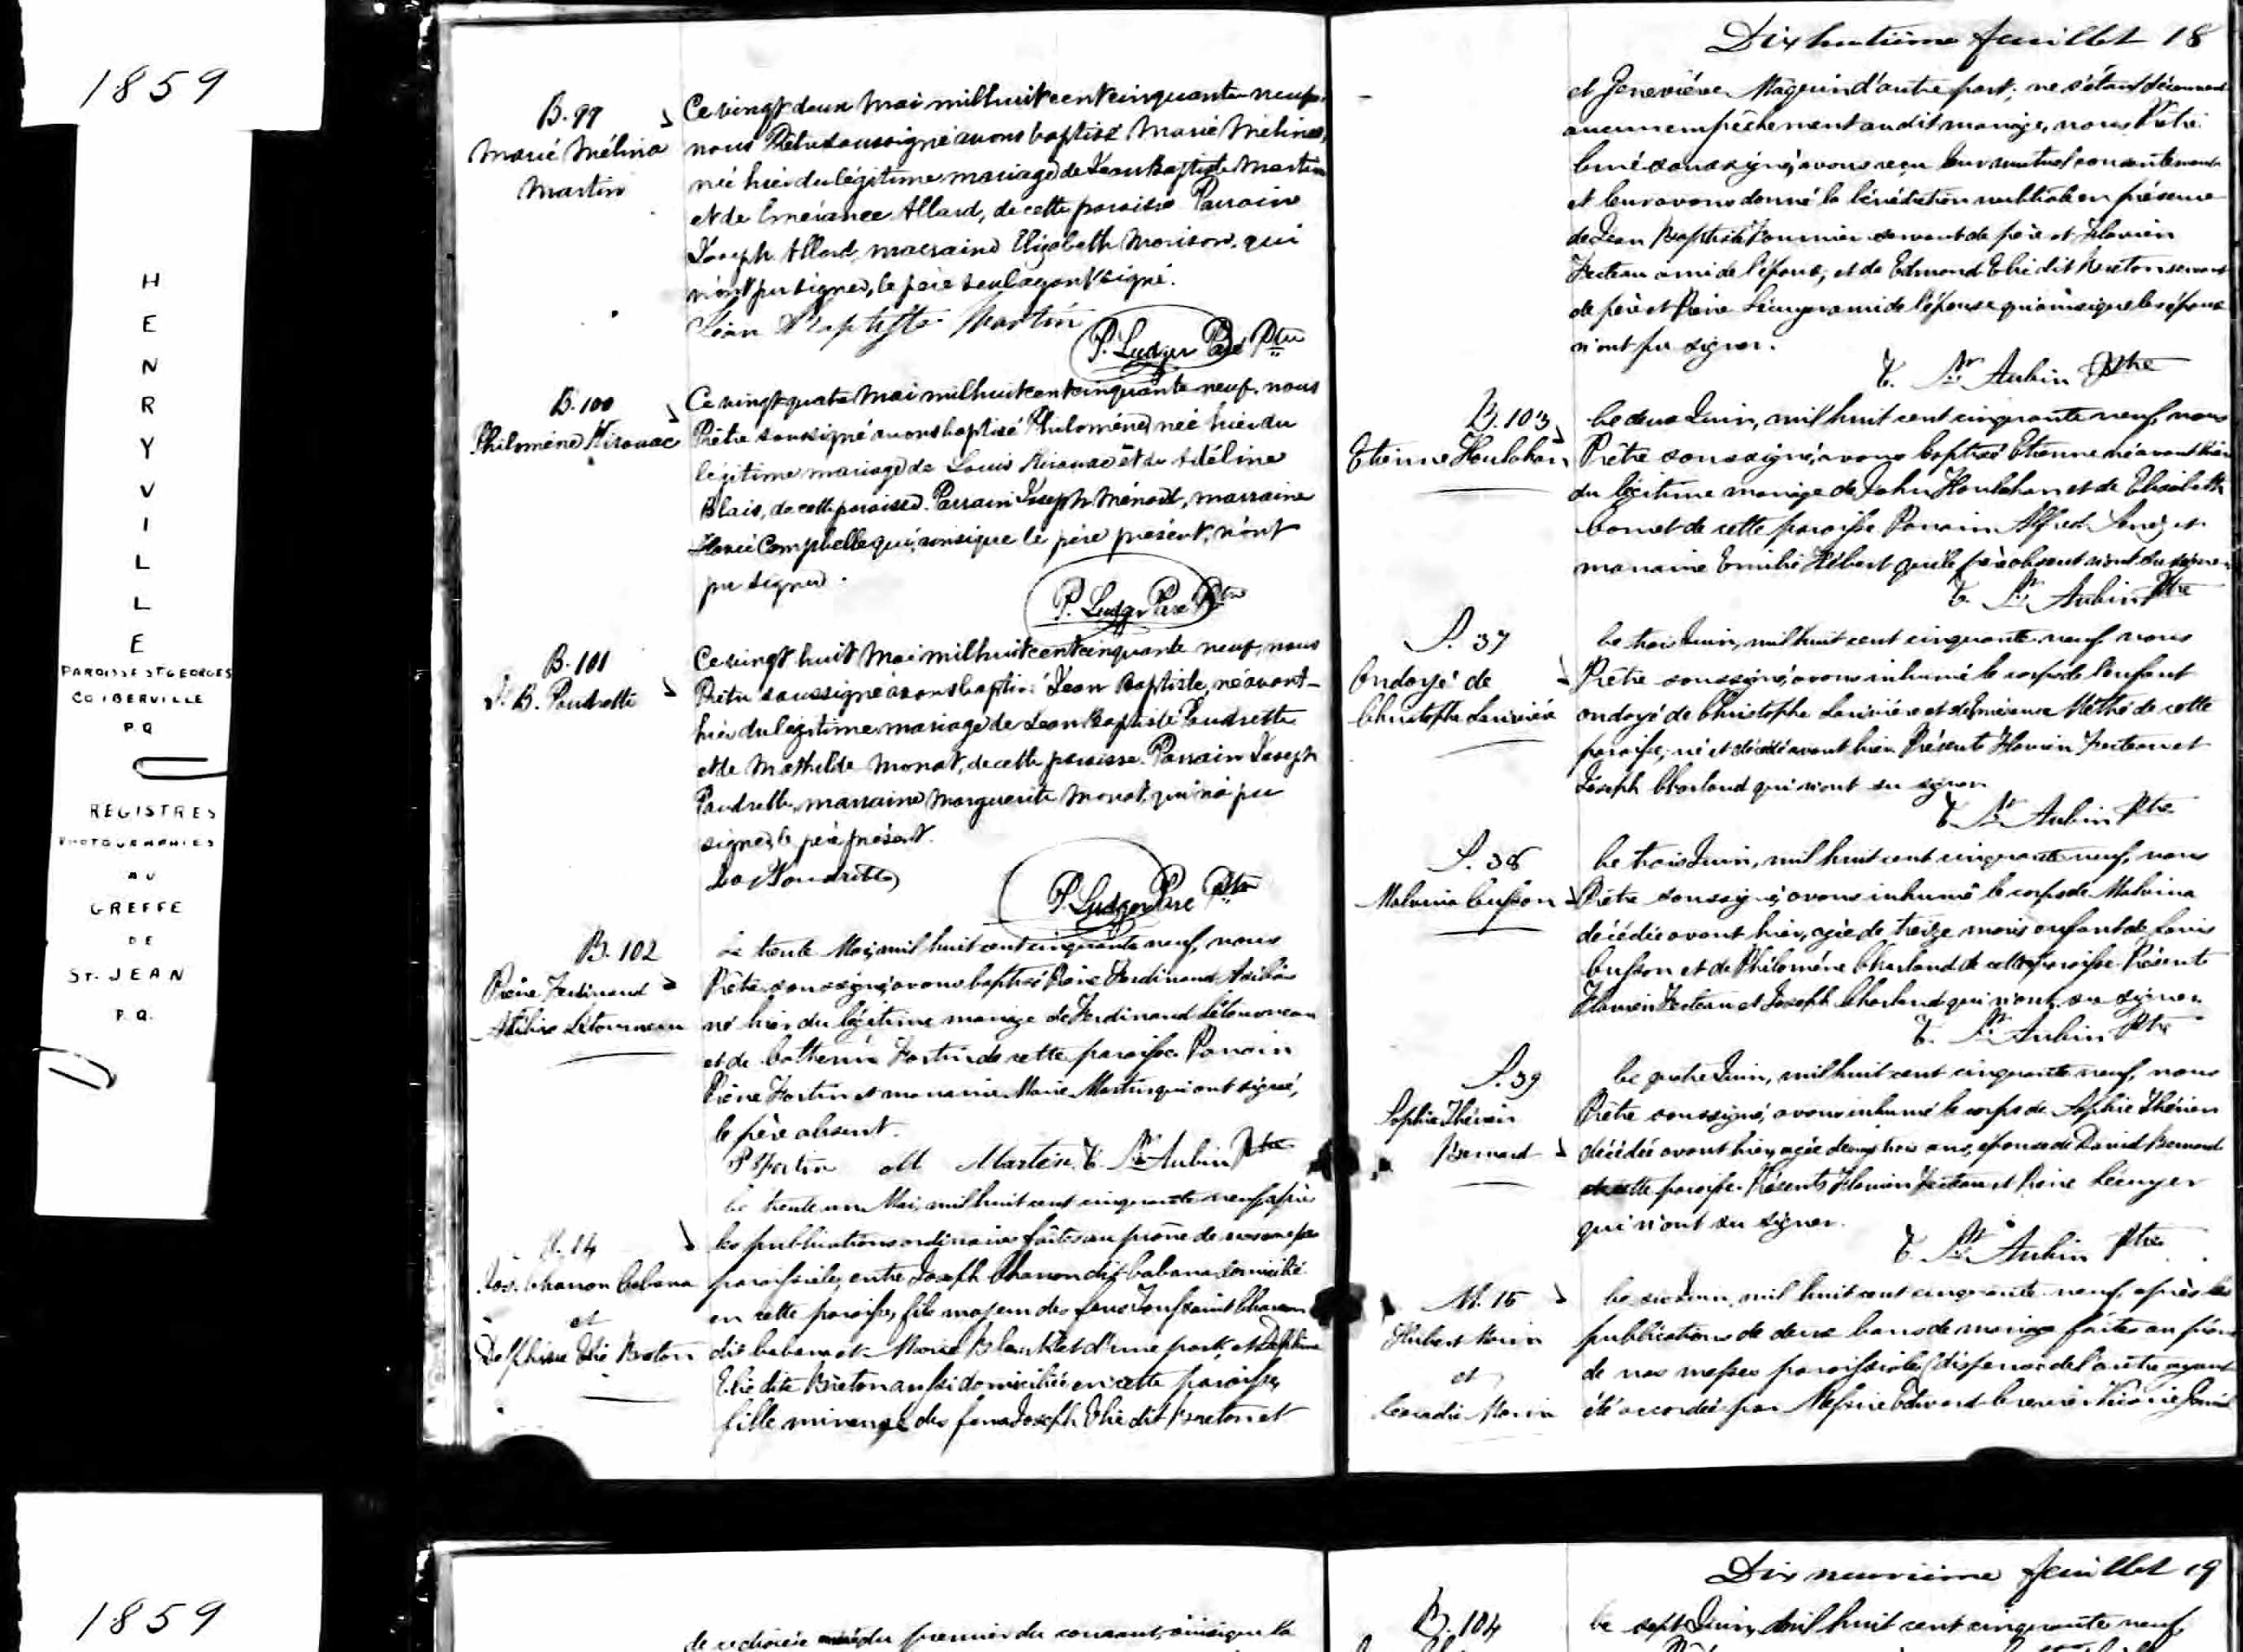 1859
HENRYVILLE
PAROISSE ST GEORGES
CO IBERVILLE
P Q
REGISTRES
PHOTOGRAPHIES
AU
GREFFE
DE
ST. JEAN
P.Q.
B. 99
Marie Mélina
Martin
Ce vingt deux Mai mil huit cent cinquante neuf
nous Prêtre soussigné avons baptisé Marie Mélina,
née hier du légitime mariage de Jean Baptiste Martin
et de Emérance Allard, de cette paroisse Parrain
Joseph Allard, marraine Elizabeth Morison, qui
n'ont pu signer, le père seul ayant signé.
Jean Baptiste Martin
P. Ludger Paré Ptre
B. 100
Philomène Kirouac
Ce vingt quatre Mai mil huit cent cinquante neuf, nous
Prêtre soussigné avons baptisé Philomène, née hier du
légitime mariage de Louis Kirouac et de Adéline
Blais, de cette paroisse. Parrain Joseph Ménard, marraine
Campbelle qui, ainsi que le père présent, n'ont
pu signer.
P. Ludger Paré Ptre
B. 101
J. B. Poudrette
Ce vingt huit Mai mil huit cent cinquante neuf, nous
Prêtre soussigné avons baptisé Jean Baptiste, né avant-
hier du légitime mariage de Jean Baptiste Poudrette
et de Mathilde Monat, de cette paroisse. Parrain Joseph
Poudrette, marraine Marguerite Monat, qui n'a pu
signer, le père présent.
Jos Poudrette
P. Ludger Paré Ptre
B. 102
Pierre Ferdinand
Létourneau
Le trente Mai, mil huit cent cinquante neuf, nous
Prêtre soussigné, avons baptisé Pierre Ferdinand
né hier du légitime mariage de Ferdinand Létourneau
et de Catherine Fortin de cette paroisse Parrain
Pierre Fortin et marraine Marie Martin qui ont signé,
le père absent.
P Fortin M Martin T. St Aubin Ptre
M. 14
Jos. Charron Cabana
et
Delphine Elie Breton
Le trente un Mai, mil huit cent cinquante neuf, après
les publications ordinaires faites au prône de nos messes
paroissiales, entre Joseph Charron dit Cabana domicilié
en cette paroisse, fils majeur des feus Toussaint Charron
dit Cabana et Marie d'une part, et Delphine
Elie dite Breton aussi domiciliée en cette paroisse,
fille mineure des feus Joseph Elie dit Breton et
Dix huitième feuillet 18
et Geneviève Maguin d'autre part; ne s'étant découvert
aucun empêchement au dit mariage, nous Prêtre
Curé soussigné, avons reçu leur mutuel consentement
et leur avons donné la bénédiction nuptiale en présence
de Jean Baptiste Fournier servant de père et Flavien
Fecteau ami de l'époux, et de Edmond Elie dit Breton servant
de père et Pierre Lécuyer ami de l'épouse qui ainsi que les époux
n'ont pu signer.
T. St Aubin Ptre
B. 103
Etienne Houlahan
Le deux Juin, mil huit cent cinquante neuf, nous
Prêtre soussigné, avons baptisé Etienne né avant hier
du légitime mariage de John Houlahan et de Elisabeth
de cette paroisse Parrain Alfred et
marraine Emilie Hébert qui le père absent n'ont su signer
T. St Aubin Ptre
S. 37
Ondoyé de
Christophe Larivière
Le trois Juin, mil huit cent cinquante neuf nous
Prêtre soussigné, avons inhumé le corps de l'enfant
ondoyé de Christophe Larivière et de Emérance Méthé de cette
paroisse, né et décédé avant hier Présents Flavien Fecteau et
Joseph Charland qui n'ont su signer
T. St Aubin Ptre
S. 38
Malvina Cusson
Le trois Juin, mil huit cent cinquante neuf, nous
Prêtre soussigné, avons inhumé le corps de Malvina
décédée avant hier, agée de treize mois enfant de
Cusson et de Philomène Charland de cette paroisse Présents
Flavien Fecteau et Joseph Charland qui n'ont su signer
T. St Aubin Ptre
S. 39
Sophie Thérien
Bernard
Le quatre Juin, mil huit cent cinquante neuf, nous
Prêtre soussigné, avons inhumé le corps de Sophie Thérien
décédée avant hier, agée de trois ans, épouse de David Bernard
de cette paroisse. Présents Flavien Fecteau et Pierre Lécuyer
qui n'ont su signer.
T. St Aubin Ptre
M. 15
Hubert Morin
et
Léocadie Morin
Le six Juin, mil huit cent cinquante neuf, après les
publications de deux bans de mariage faites au prône
de nos messes paroissiales (dispense de l'autre ayant
été accordée par Messire Edouard Vicaire
1859
de du premier du courant, ainsi que la
Dix neuvième feuillet 19
B. 104
Le sept Juin, mil huit cent cinquante neuf,